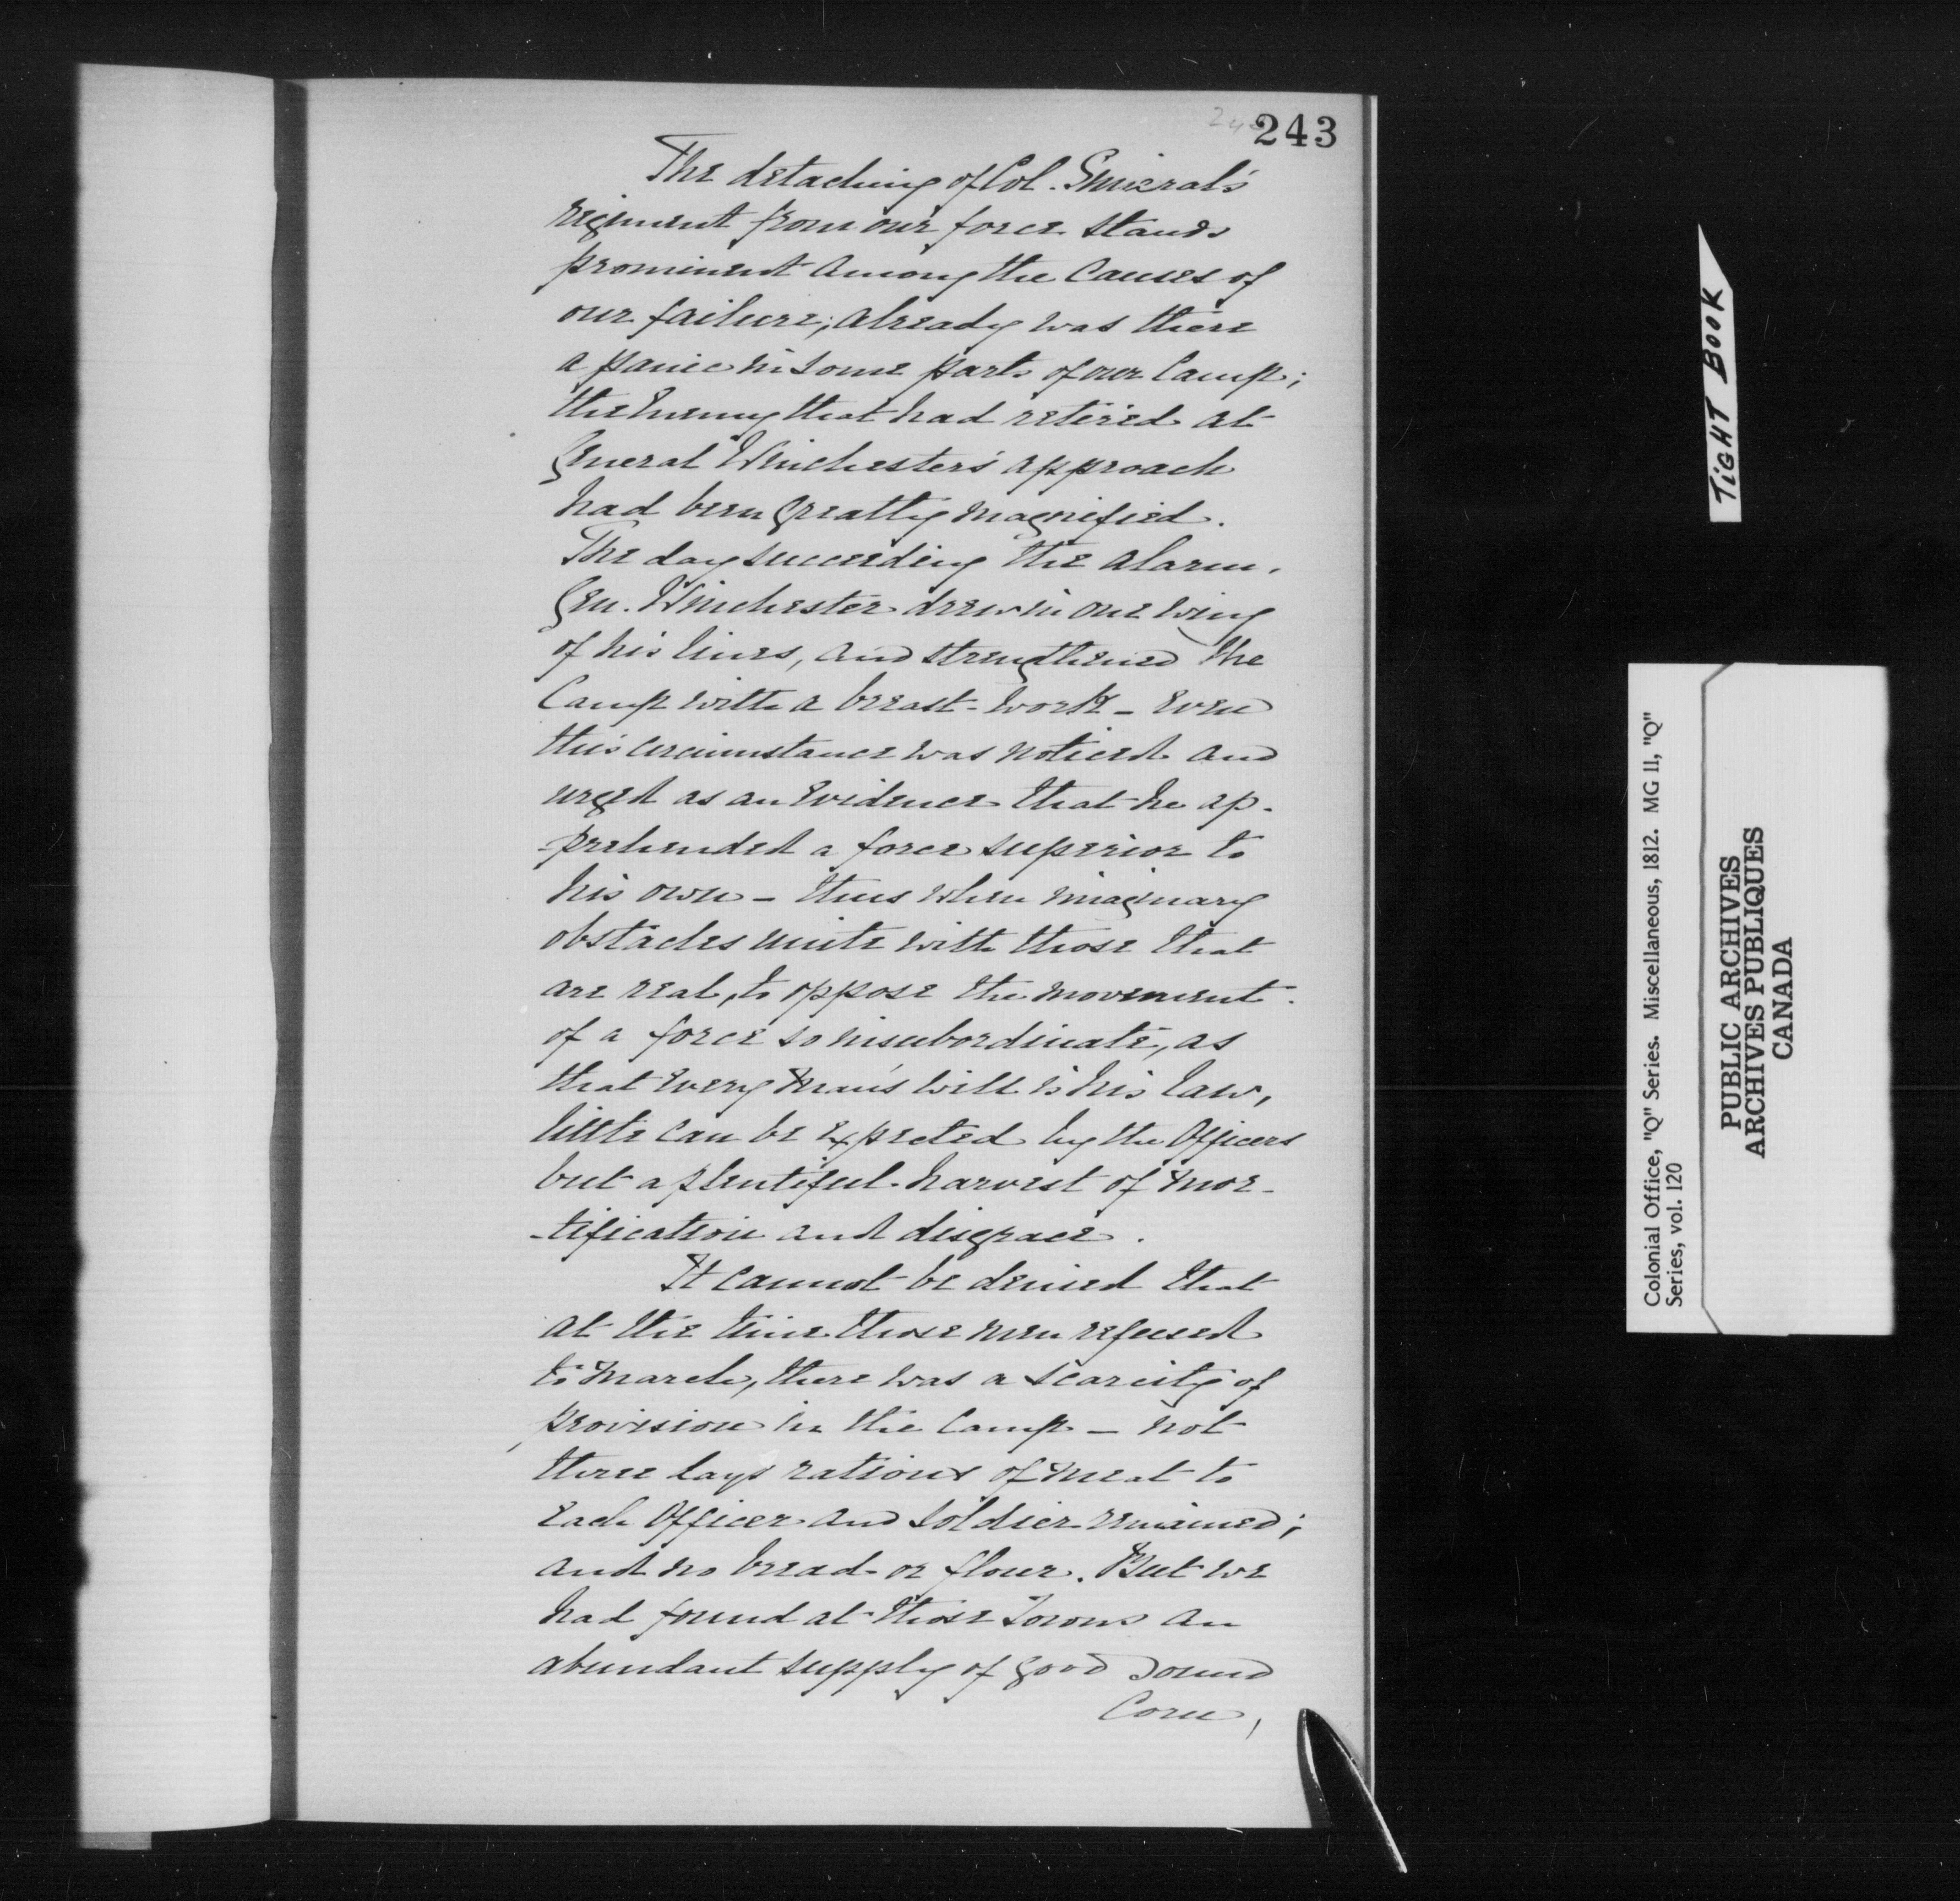 243
The detaching of Col. Smizral's
regiment from our force stands
prominent among the causes of
our failure; already was there
a panic in some parts of our Camp;
the Enemy that had retired at
General Winchester's approach
had been greatly magnified.
The day succeeding the alarm.
Gen. Winchester drew in one wing
of his lines, and strengthened the
Camp with a breast-work - even
this circumstance was noticed and
urged as an evidence that he ap-
-prehended a force superior to
his own - thus when imaginary
obstacles unite with those that
are real, to oppose the movement
of a force so insubordinate, as
that every man's will is his law,
little can be expected by the Officers
but a plentiful harvest of mor-
-tification and disgrace.
It cannot be denied that
at the time those men refused
to march, there was a scarcity of
provision in the Camp - not
three days rations of meat to
each Officer and soldier remained;
and no bread or flour. But we
had found at those Towns an
abundant supply of good sound
Corn,
TIGHT BOOK
Colonial Office, "Q" Series. Miscellaneous, 1812. MG 11, "Q"
Series, vol. 120
PUBLIC ARCHIVES
ARCHIVES PUBLIQUES
CANADA